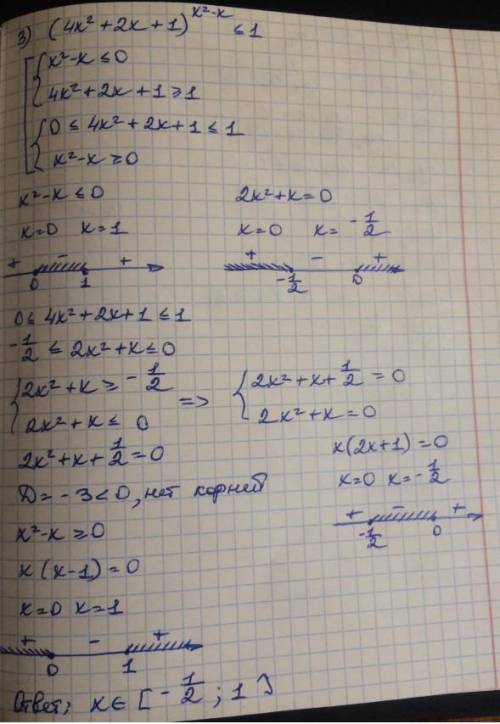 3) (4x²+2x+1)^(x²-x) ≤ 1
x²-x ≤ 0
4x²+2x+1 ≥ 1
0 ≤ 4x²+2x+1 ≤ 1
x²-x ≥ 0
x²-x ≤ 0
x=0 x=1
+ - +
0 1
2x²+x=0
x=0 x= -1/2
+ - +
-1/2 0
0 ≤ 4x²+2x+1 ≤ 1
-1/2 ≤ 2x²+x ≤ 0
2x²+x ≥ -1/2
2x²+x ≤ 0
=>
2x²+x+1/2 = 0
2x²+x=0
2x²+x+1/2=0
D=-3<0, нет корней
x(2x+1)=0
x=0 x=-1/2
+ - +
-1/2 0
x²-x ≥ 0
x(x-1)=0
x=0 x=1
+ - +
0 1
Ответ; x∈[-1/2; 1]